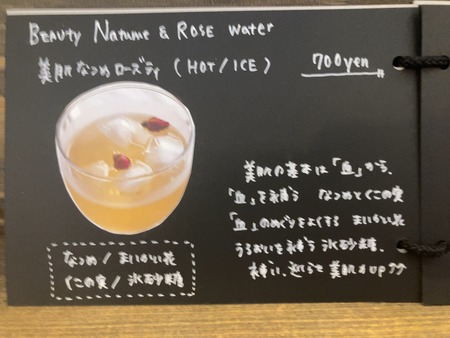 BEAUTY Natume & ROSE water
美肌なつめローズティ (HOT/ICE) 700yen
なつめ / まいかい花
くこの実 / 氷砂糖
美肌の基本は「血」から、
「血」を補う なつめとくこの実
「血」のめぐりをよくする まいかい花
うるおいを補う 氷砂糖、
補い、巡らせ 美肌力up↗↗